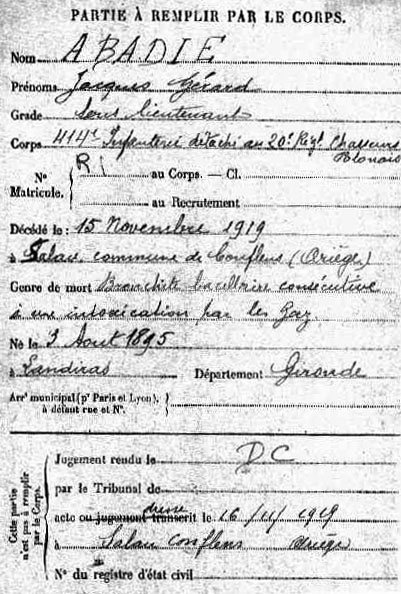 PARTIE À REMPLIR PAR LE CORPS.
Nom ABADIE
Prénoms Jacques Gérard
Grade Sous lieutenant
Corps 414e Infanterie détaché au 20e Régt Chasseurs
Polonais
N° Matricule. { R I au Corps. — Cl.
au Recrutement
Décédé le : 15 Novembre 1919
à Salau commune de Conflens (Ariège)
Genre de mort Bronchite bacillaire consécutive
à une intoxication par les Gaz
Né le 3 Août 1895
à Landiras Département Gironde
Arrt municipal (pr Paris et Lyon),
à défaut rue et N°.
Cette partie n'est pas à remplir par le Corps.
Jugement rendu le D C
par le Tribunal de
acte ou jugement transcrit le 16/11/1919
à Salau Conflens Ariège
N° du registre d'état civil